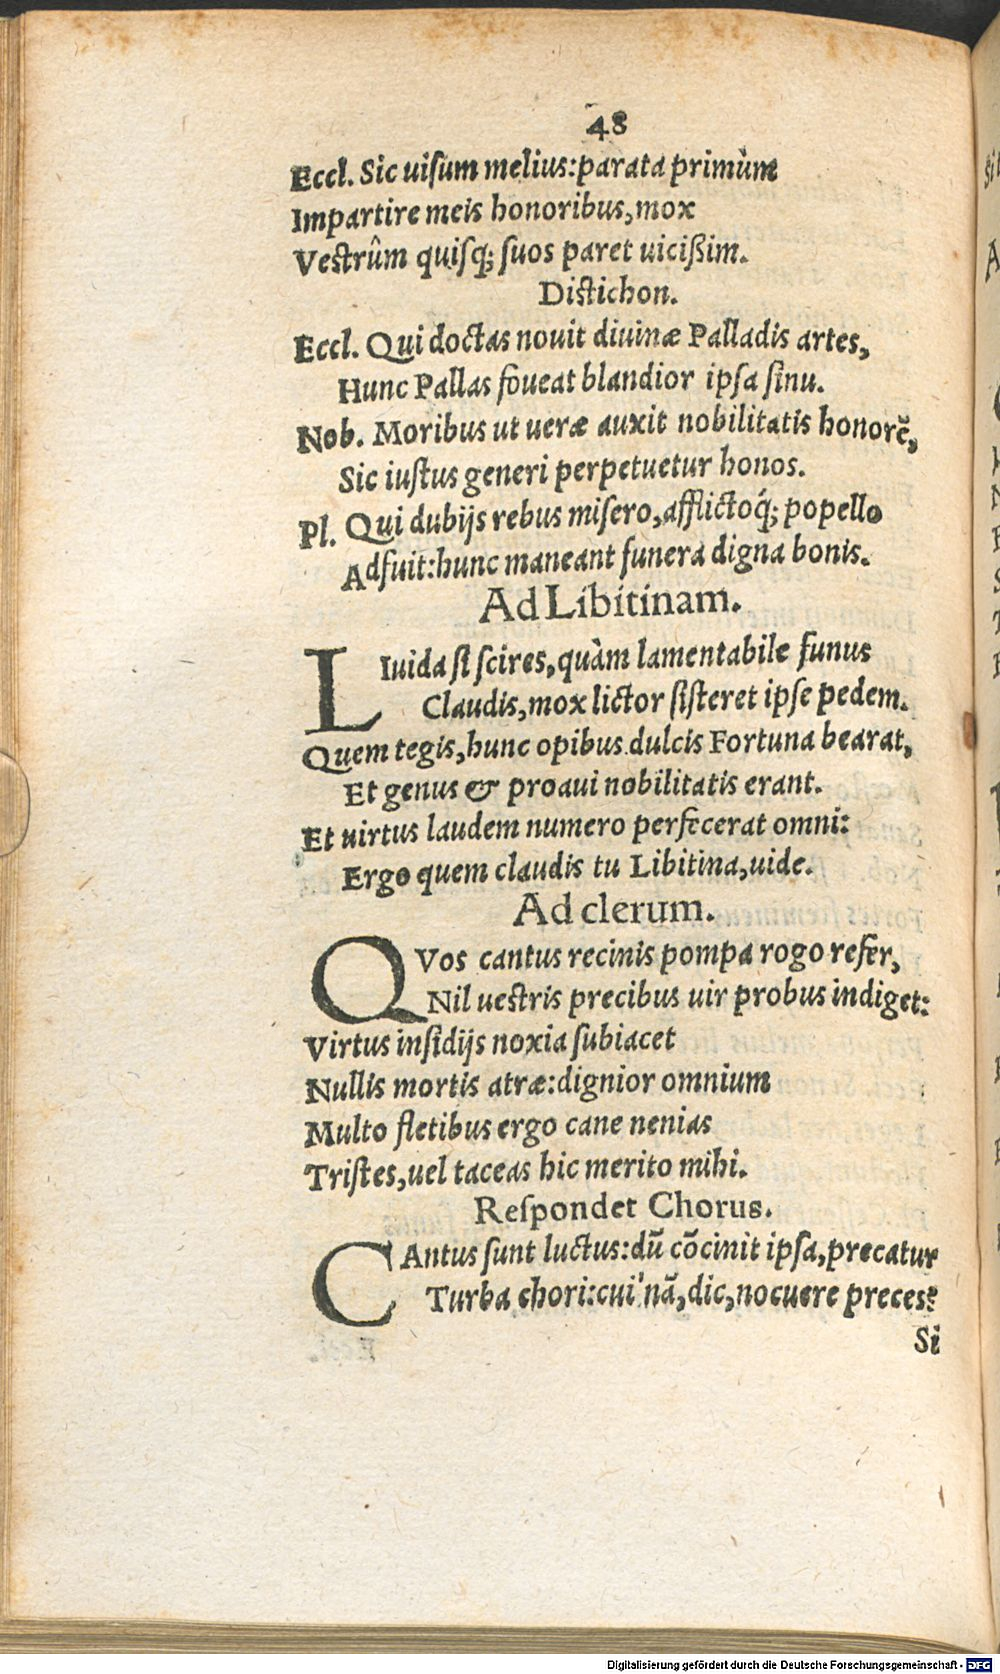 48
Eccl. Sic uiſum melius:parata primùm
Impartire meis honoribus,mox
Veſtrûm quiſq; ſuos paret uicißim.
Diſtichon.
Eccl. Qui doctas nouit diuinæ Palladis artes,
Hunc Pallas foueat blandior ipſa ſinu.
Nob. Moribus ut ueræ auxit nobilitatis honorẽ,
Sic iuſtus generi perpetuetur honos.
Pl. Qui dubijs rebus miſero,afflictoq́; popello
Adfuit:hunc maneant funera digna bonis.
Ad Libitinam.
LIuida ſi ſcires,quàm lamentabile funus
Claudis,mox lictor ſiſteret ipſe pedem.
Quem tegis,hunc opibus dulcis Fortuna bearat,
Et genus & proaui nobilitatis erant.
Et uirtus laudem numero perfecerat omni:
Ergo quem claudis tu Libitina,uide.
Ad clerum.
QVos cantus recinis pompa rogo refer,
Nil ueſtris precibus uir probus indiget:
Virtus inſidijs noxia ſubiacet
Nullis mortis atræ:dignior omnium
Multo fletibus ergo cane nenias
Triſtes,uel taceas hic merito mihi.
Reſpondet Chorus.
CAntus ſunt luctus:dũ cõcinit ipſa,precatur
Turba chori:cui nã,dic,nocuere preces?
Si
Digitalisierung gefördert durch die Deutsche Forschungsgemeinschaft - DFG